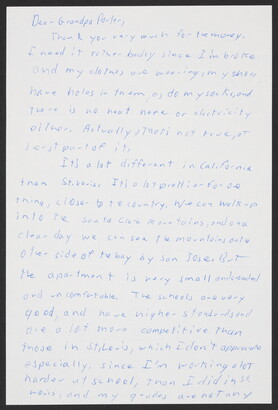 Dear Grandpa Porter,
Thank you very much for the money.
I need it rather badly since I'm broke
and my clothes are wearing, my shoes
have holes in them, as do my socks, and
there is no heat none or electricity
either. Actually that's not true, at
least part of it.
It's a lot different in California
than St. Louis. It's a lot prettier for one
thing, closer to country. We can walk up
into the Santa Cruz mountains, and on a
clear day we can see the mountains on the
other side of the bay by San Jose. But
the apartment is very small and crowded
and uncomfortable. The schools are very
good, and have higher standards and
are a lot more competitive than
those in St. Louis, which I don't appreciate
especially, since I'm working a lot
harder at school, than I did in St.
Louis, and my grades are not any